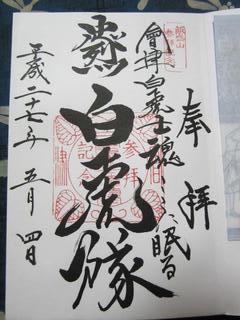 奉拝
飯盛山
會津白虎士魂
に眠る
白虎隊
参拝
記念
平成二十七年 五月 四日